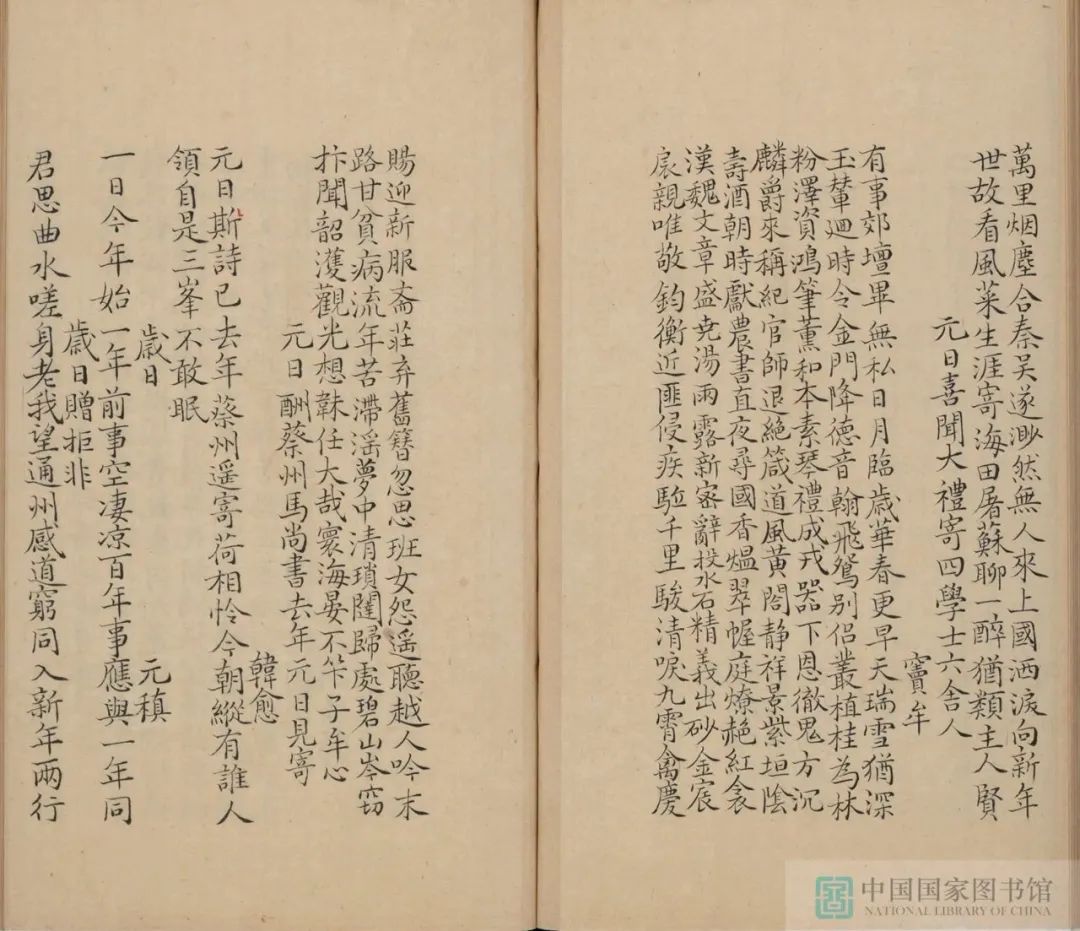 萬里烟塵合秦吴遂渺然無人來上國洒淚向新年
世故看風菜生涯寄海田屠蘇聊一醉猶類主人賢
元日喜聞大禮寄四學士六舍人
竇牟
有事郊壇畢無私日月臨歲華春更早天瑞雪猶深
玉輦廻時令金門降德音翰飛鴛别侣叢植桂為林
粉澤資鴻筆薰和本素琴禮成戎器下恩徹鬼方沉
麟爵來稱紀官師退絶箴道風黄閤静祥景紫垣陰
壽酒朝時獻農書直夜尋國香熅翠幄庭燎赩紅衾
漢魏文章盛堯湯雨露新密辭投水石精義出砂金宸
扆親唯敬鈞衡近匪侵疾駈千里駿清唳九霄禽慶
賜迎新服齋莊弃舊簪忽思班女怨遥聽越人吟末
路甘貧病流年苦滯滛夢中清瑣闥歸處碧山岑窃
抃聞韶濩觀光想韎任大哉寰海晏不笇子牟心
元日酬蔡州馬尚書去年元日見寄
韓愈
元日斯詩已去年蔡州遥寄荷相怜今朝縱有誰人
領自是三峯不敢眠
歲日
元稹
一日今年始一年前事空凄凉百年事應與一年同
歲日贈拒非
君思曲水嗟身老我望通州感道窮同入新年兩行
中国国家图书馆
NATIONAL LIBRARY OF CHINA